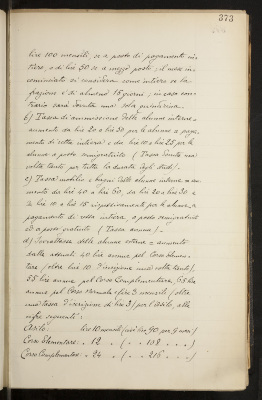 373
lire 100 mensili, se a posto di pagamento in-
tiero, e di lire 50 se a mezzo posto; il mese in-
cominciato si considera come intiero se la
frazione è di almeno 15 giorni; in caso con-
trario sarà dovuta una sola quindicina.
b) Tassa di ammissione delle alunne interne =
aumento da lire 20 a lire 30 per le alunne a paga-
mento di retta intiera; e da lire 10 a lire 25 per le
alunne a posto semigratuito (Tassa dovuta una
volta tanto per tutta la durata degli studi).
c) Tassa mobilio e bagni delle alunne interne = au-
mento da lire 40 a lire 60, da lire 20 a lire 30 e
a lire 10 a lire 15 rispettivamente per le alunne a
pagamento di retta intiera, a posto semigratuito
ed a posto gratuito (Tassa annua).
d) Sopratasse delle alunne esterne = aumento
dalle attuali 40 lire annue pel Corso Elemen-
tare (oltre lire 10 d'iscrizione una volta tanto),
55 lire annue pel Corso Complementare, 65 lire
annue pel Corso Normale e lire 3 mensili (oltre
una tassa d'iscrizione di lire 3) per l'Asilo, alle
cifre seguenti:
Asilo: lire 10 mensili (cioè lire 90 per 9 mesi)
Corso Elementare: " 12 " ( " " 108 " " " )
Corso Complementare: " 24 " ( " " 216 " " " )